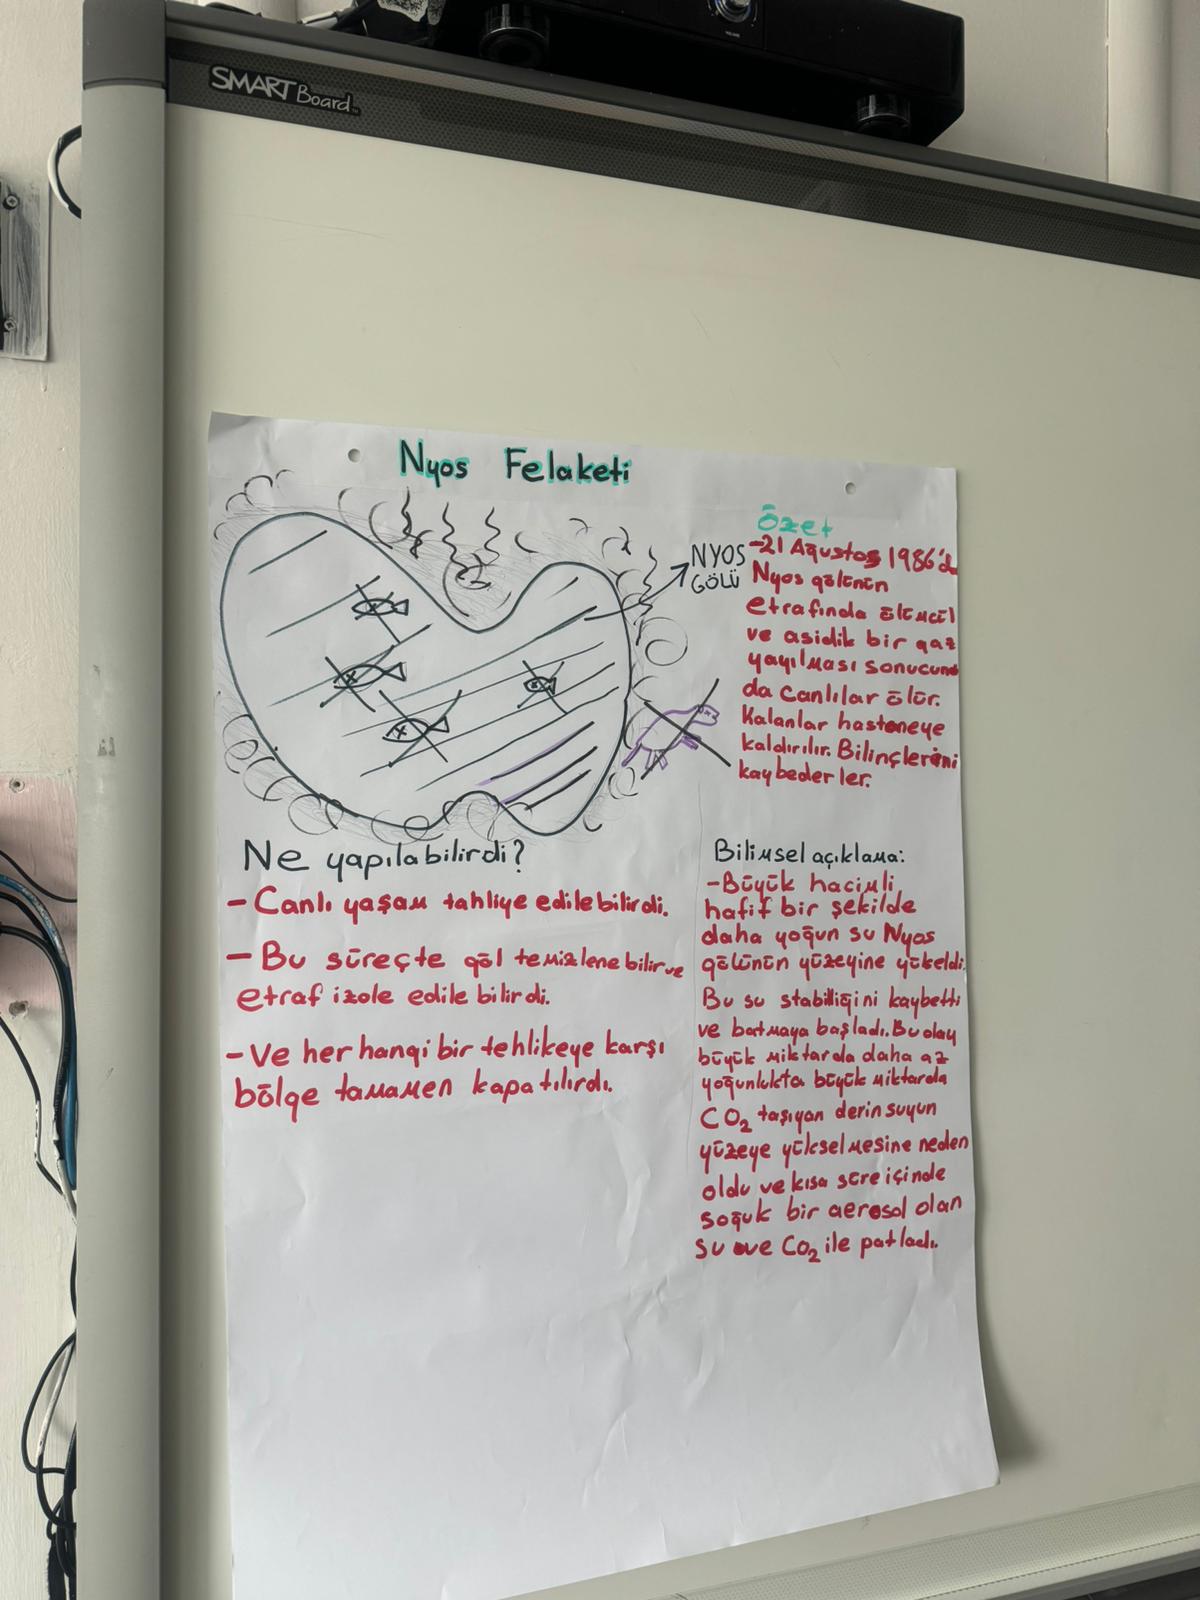 SMART Board
Nyos Felaketi
NYOS
GÖLÜ
Özet
-21 Ağustos 1986'd
Nyos gölünün
etrafında ölümcül
ve asidik bir gaz
yayılması sonucun
da canlılar ölür.
Kalanlar hastaneye
kaldırılır. Bilinçlerini
kaybederler.
Ne yapılabilirdi?
- Canlı yaşam tahliye edilebilirdi.
- Bu süreçte göl temizlenebilir ve
etraf izole edilebilirdi.
- Ve herhangi bir tehlikeye karşı
bölge tamamen kapatılırdı.
Bilimsel açıklama:
-Büyük hacimli
hafif bir şekilde
daha yoğun su Nyos
gölünün yüzeyine yükeldi.
Bu su stabilliğini kaybetti
ve batmaya başladı. Bu olay
büyük miktarda daha az
yoğunlukta büyük miktarda
CO₂ taşıyan derin suyun
yüzeye yükselmesine neden
oldu ve kısa süre içinde
soğuk bir aerosol olan
su ve CO₂ ile patladı.